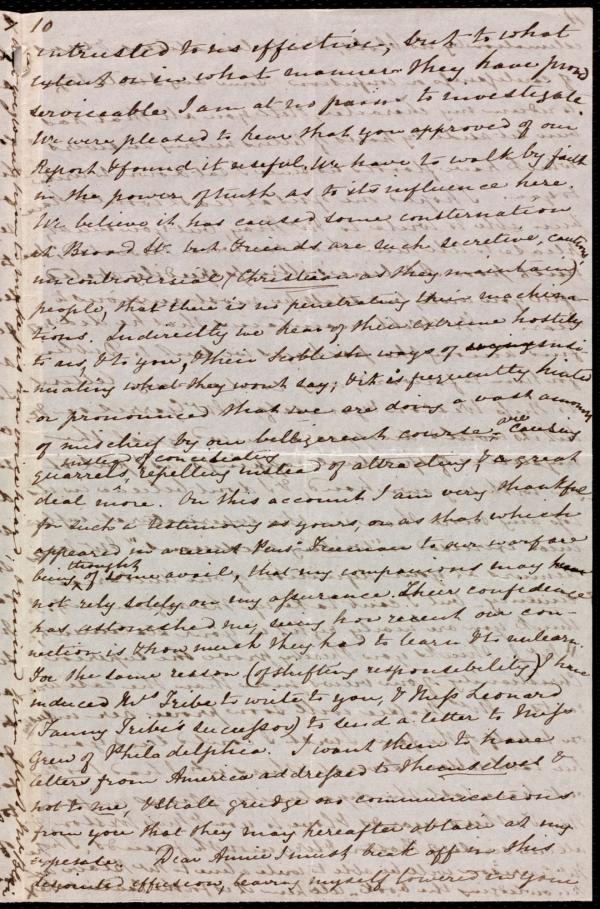 10
intrusted to us effective, but to what
extent or in what manner they have proved
serviceable I am at no pains to investigate.
We were pleased to hear that you approved of our
Report & found it useful. We have to walk by faith
in the power of truth as to its influence here.
We believe it has caused some consternation
at Broad St. but Friends are such secretive, cautious,
uncontroversial (Christian as they maintain)
people, that there is no penetrating their machina-
tions. Indirectly we hear of their extreme hostility
to us, & to you, & their ways of insi-
nuating what they wont say; & it is frequently hinted
or pronounced that we are doing a vast amount
of mischief by our belligerent course, are causing
quarrels, instead of conciliating, repelling instead of attracting, & a great
deal more. On this account I am very thankful
for such a testimony as yours, or as that which
appeared in a recent Penn. Freeman to our warfare
being thought of some avail, that my companions may
not rely solely on my assurance. Their confidence
has astonished me, seeing how recent our con-
nection is & how much they had to learn & to unlearn.
For the same reason (of shifting responsibility) I have
induced Mrs Tribe to write to you, & Miss Leonard
(Fanny Tribe's successor) to send a letter to Miss
Grew of Philadelphia. I want them to have
letters from America addressed to themselves &
not to me, & shall grudge no communications
from you that they may hereafter obtain at my
expense. Dear Annie I must break off in this
disjointed effusion, leaving myself lowered in your